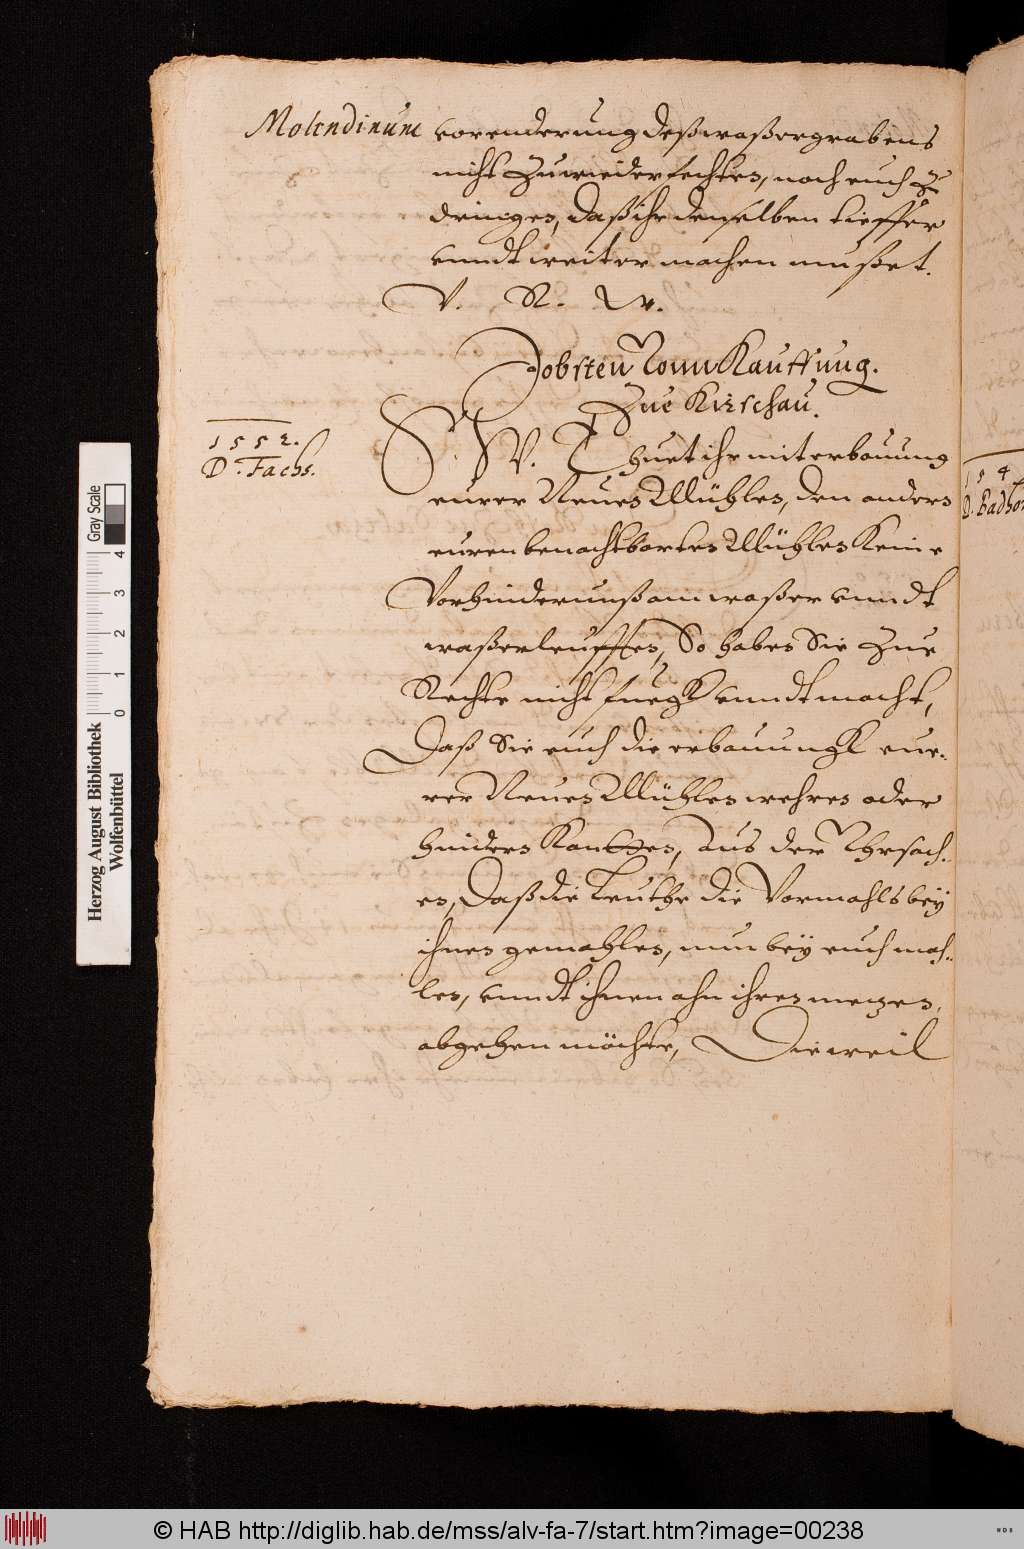 Molendinum vorenderung deß waßergrabens
nicht zuwiederfechten, noch euch zu
dringen, daß ihr denselben tieffer
vnndt weiter machen mußet.
V. R. W.
Jobsten Vonn Kauffung.
Zue Kirschau.
1552.
D. Fachs.
S. W. Thuet ihr mit erbauung
eurer Neuen Mühlen, den andern
euren benachtbarten Mühlen Keine
Vorhinderunß am waßer vnndt
waßerleufften, So haben Sie Zue
Rechte nicht fuegk vnndt macht,
Daß Sie euch die erbauungk eue-
rer Neuen Mühlen wehren oder
hindern Kontten, Aus der Vhrsach-
en, Daß die Leuthe die Vormahls bey
ihnen gemahlen, nun bey euch mah-
len, vnndt ihnen ahn ihren metzen,
abgehen möchte, Dieweil
154
D. Badhor
Gray Scale
0 1 2 3 4
Herzog August Bibliothek
Wolfenbüttel
© HAB http://diglib.hab.de/mss/alv-fa-7/start.htm?image=00238
HAB